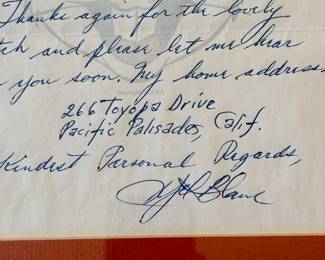 Thanks again for the lovely
tch and please let me hear
you soon. My home address
266 Toyopa Drive
Pacific Palisades, Calif.
Kindest Personal Regards,
Mel Blanc